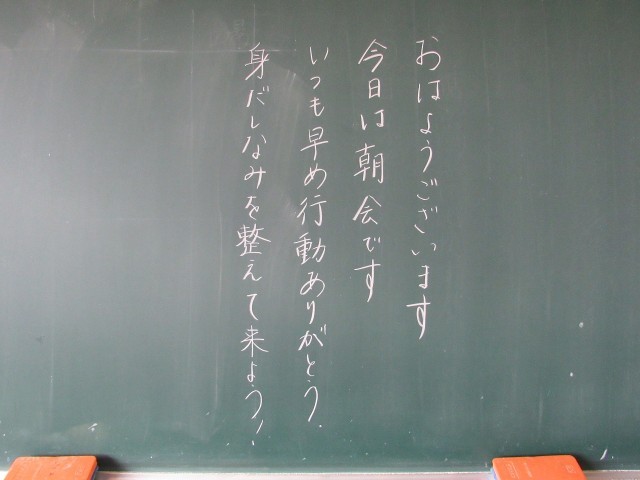 おはようございます
今日は朝会です
いつも早め行動ありがとう.
身だしなみを整えて来よう!